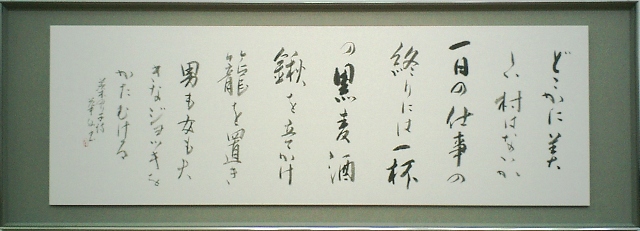 どこかに美
しい村はないか
一日の仕事の
終りには一杯
の黒麦酒
鍬を立てかけ
籠を置き
男も女も大
きなジョッキを
かたむける